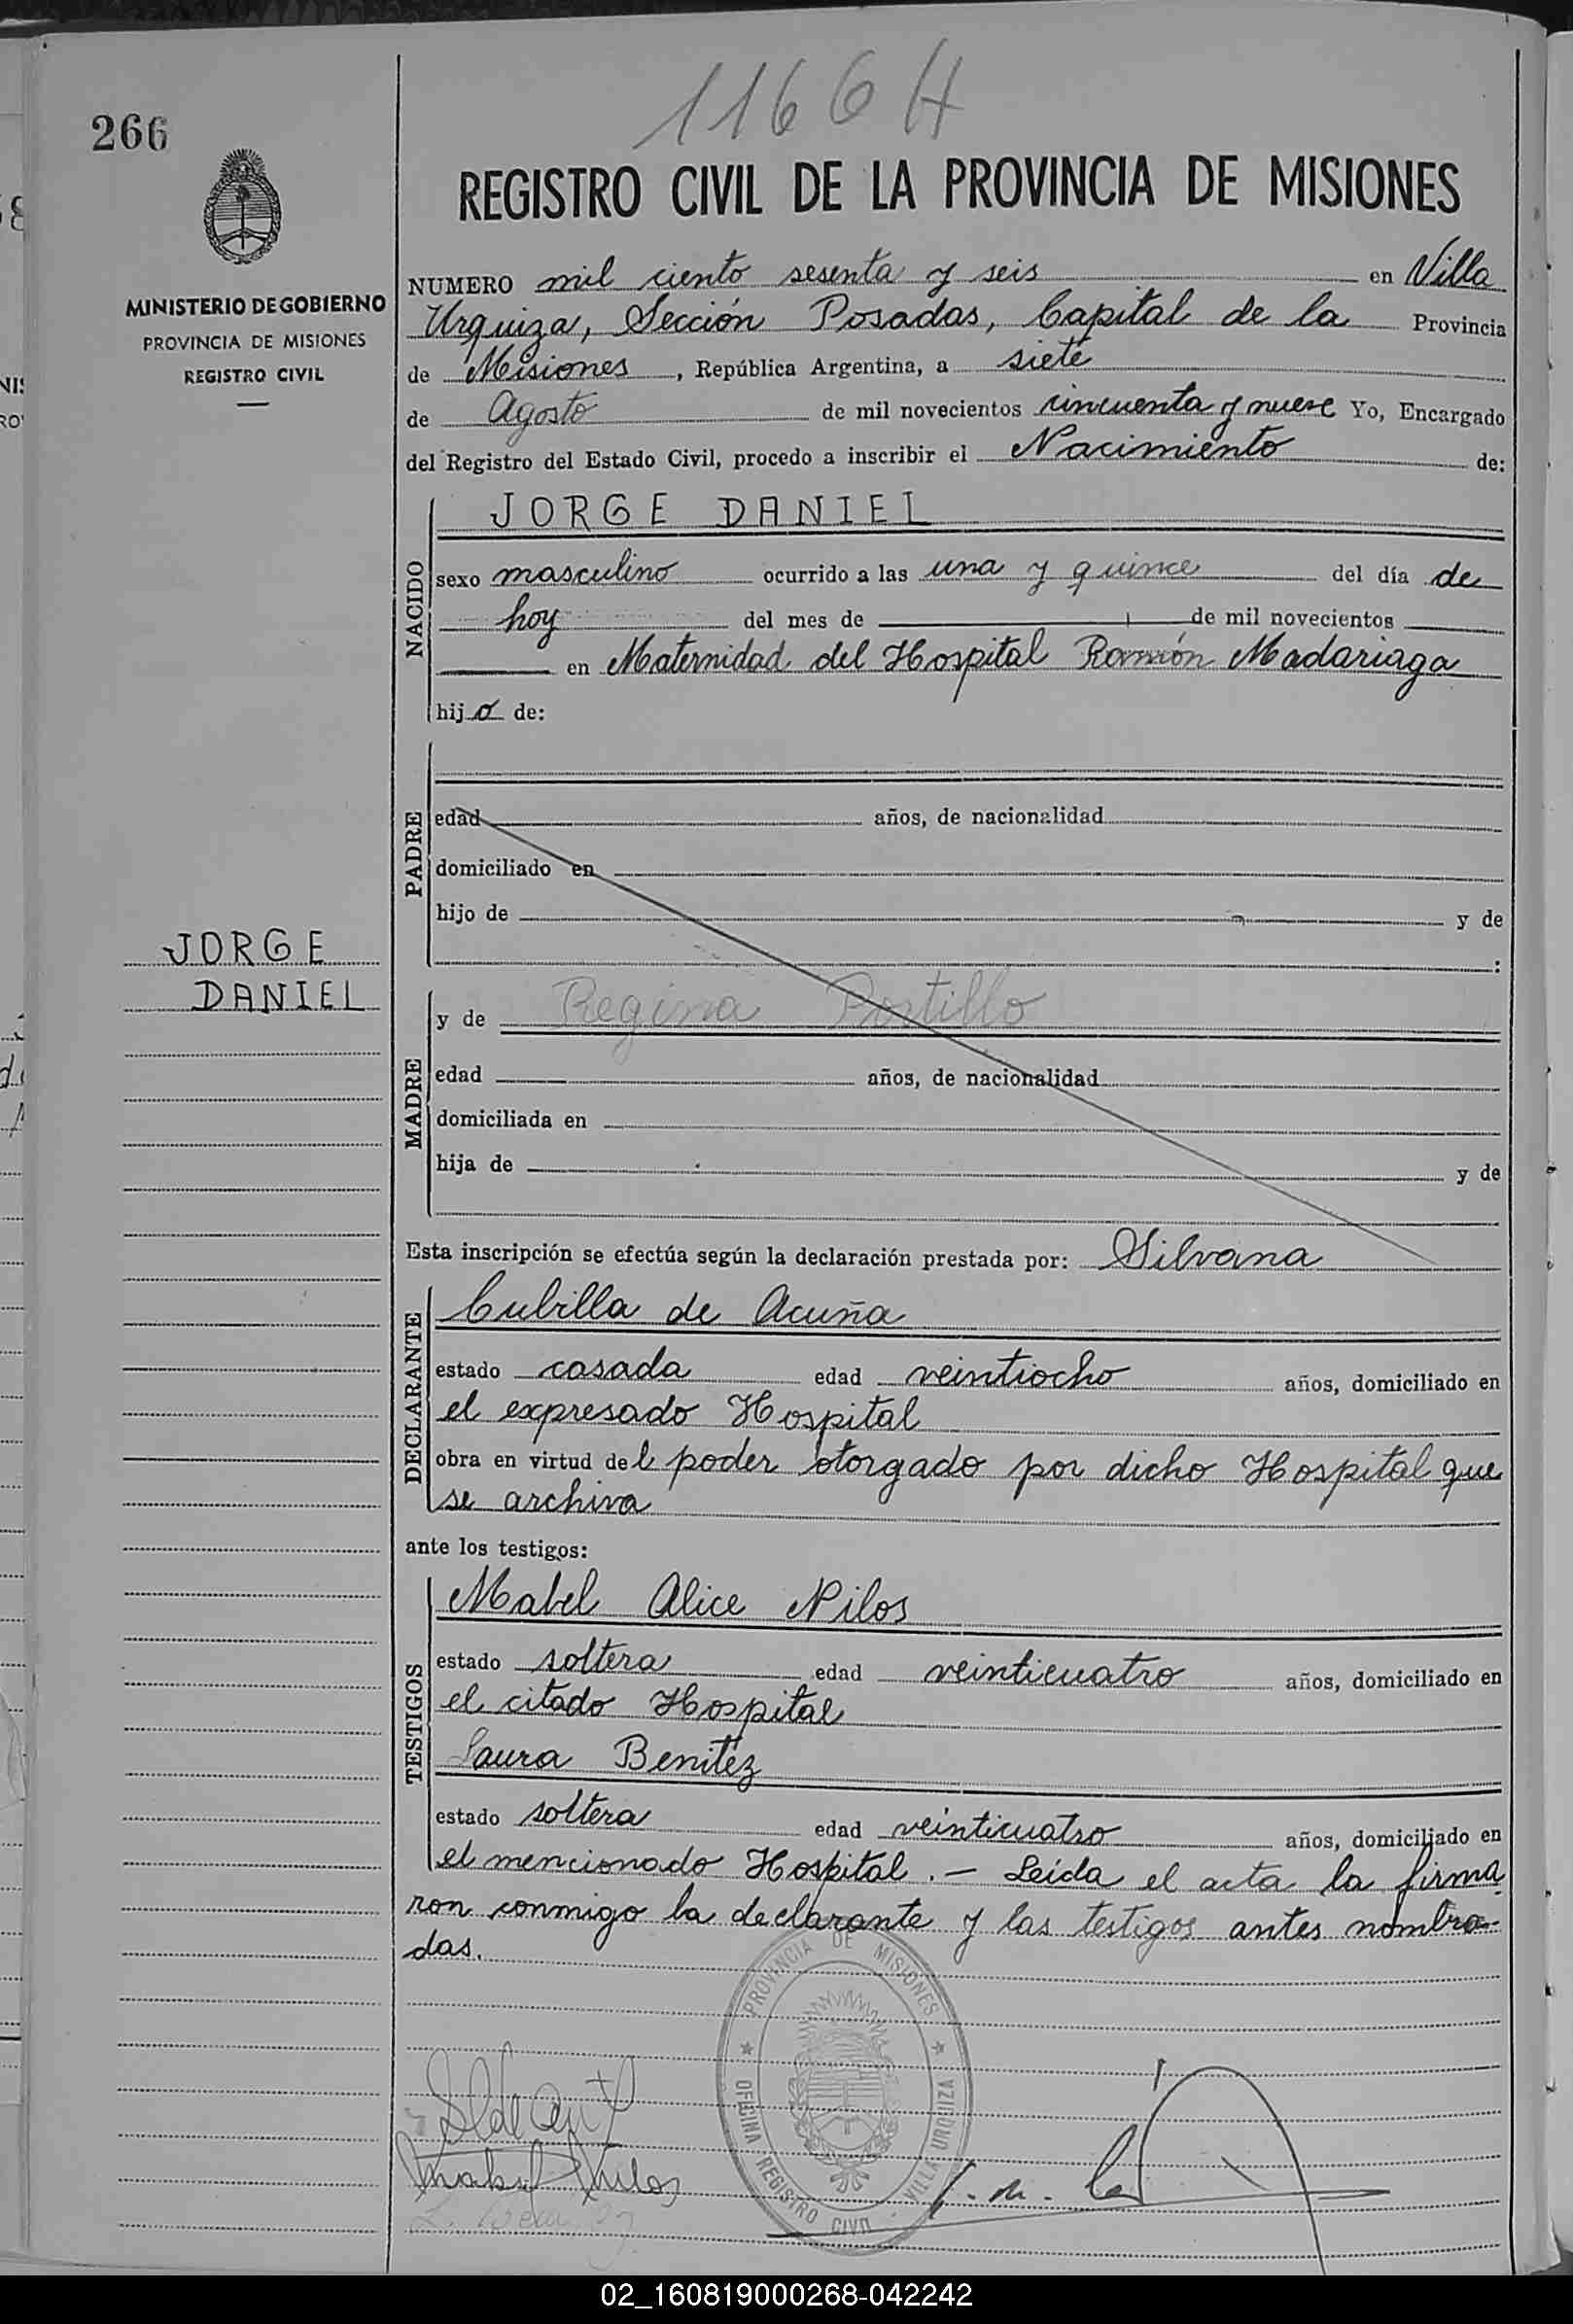 1166 H
266
REGISTRO CIVIL DE LA PROVINCIA DE MISIONES
MINISTERIO DE GOBIERNO
PROVINCIA DE MISIONES
REGISTRO CIVIL
NUMERO mil ciento sesenta y seis en Villa
Urquiza, Sección Posadas, Capital de la Provincia
de Misiones, República Argentina, a siete
de Agosto de mil novecientos cincuenta y nueve Yo, Encargado
del Registro del Estado Civil, procedo a inscribir el Nacimiento de:
NACIDO
JORGE DANIEL
sexo masculino ocurrido a las una y quince del día de
hoy del mes de de mil novecientos
en Maternidad del Hospital Ramón Madariaga
hijo de:
PADRE
edad años, de nacionalidad
domiciliado en
hijo de y de
:
JORGE
DANIEL
MADRE
y de Regina Portillo
edad años, de nacionalidad
domiciliada en
hija de y de
Esta inscripción se efectúa según la declaración prestada por: Silvana
DECLARANTE
Cubilla de Acuña
estado casada edad veintiocho años, domiciliado en
el expresado Hospital
obra en virtud del poder otorgado por dicho Hospital que
se archiva
ante los testigos:
TESTIGOS
Mabel Alice Nilos
estado soltera edad veinticuatro años, domiciliado en
el citado Hospital
Laura Benitez
estado soltera edad veinticuatro años, domiciliado en
el mencionado Hospital. — Leída el acta la firma
ron conmigo la declarante y las testigos antes nombra-
das.
PROVINCIA DE MISIONES
OFICINA REGISTRO CIVIL VILLA URQUIZA
02_160819000268-042242